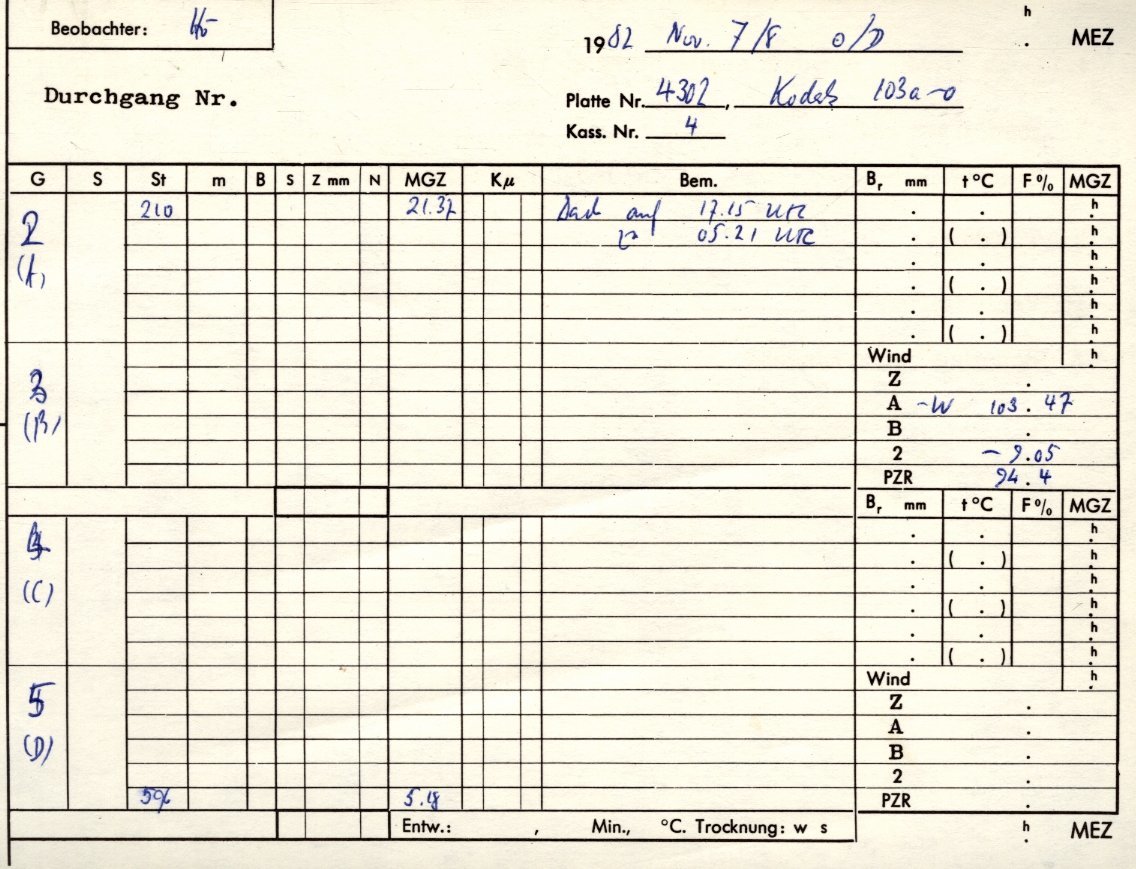 Beobachter: Hö
1982 Nov. 7/8 O/D
h . MEZ
Durchgang Nr.
Platte Nr. 4302, Kodak 103a-O
Kass. Nr. 4
G S St m B S Z mm N MGZ Kμ Bem. Br mm t °C F % MGZ
2 210 21.37 Dach auf 17.15 UTC . . h
zu 05.21 UTC . ( . ) h
(A) . . h
. ( . ) h
. . h
. ( . ) h
Wind h
3 Z .
(B) A -W 103.47
B .
2 -9.05
PZR 94.4
Br mm t °C F % MGZ
4 . . h
. ( . ) h
(C) . . h
. ( . ) h
. . h
. ( . ) h
Wind h
5 Z .
A .
(D) B .
2 .
596 5.18 PZR .
Entw.: , Min., °C. Trocknung: w s h . MEZ